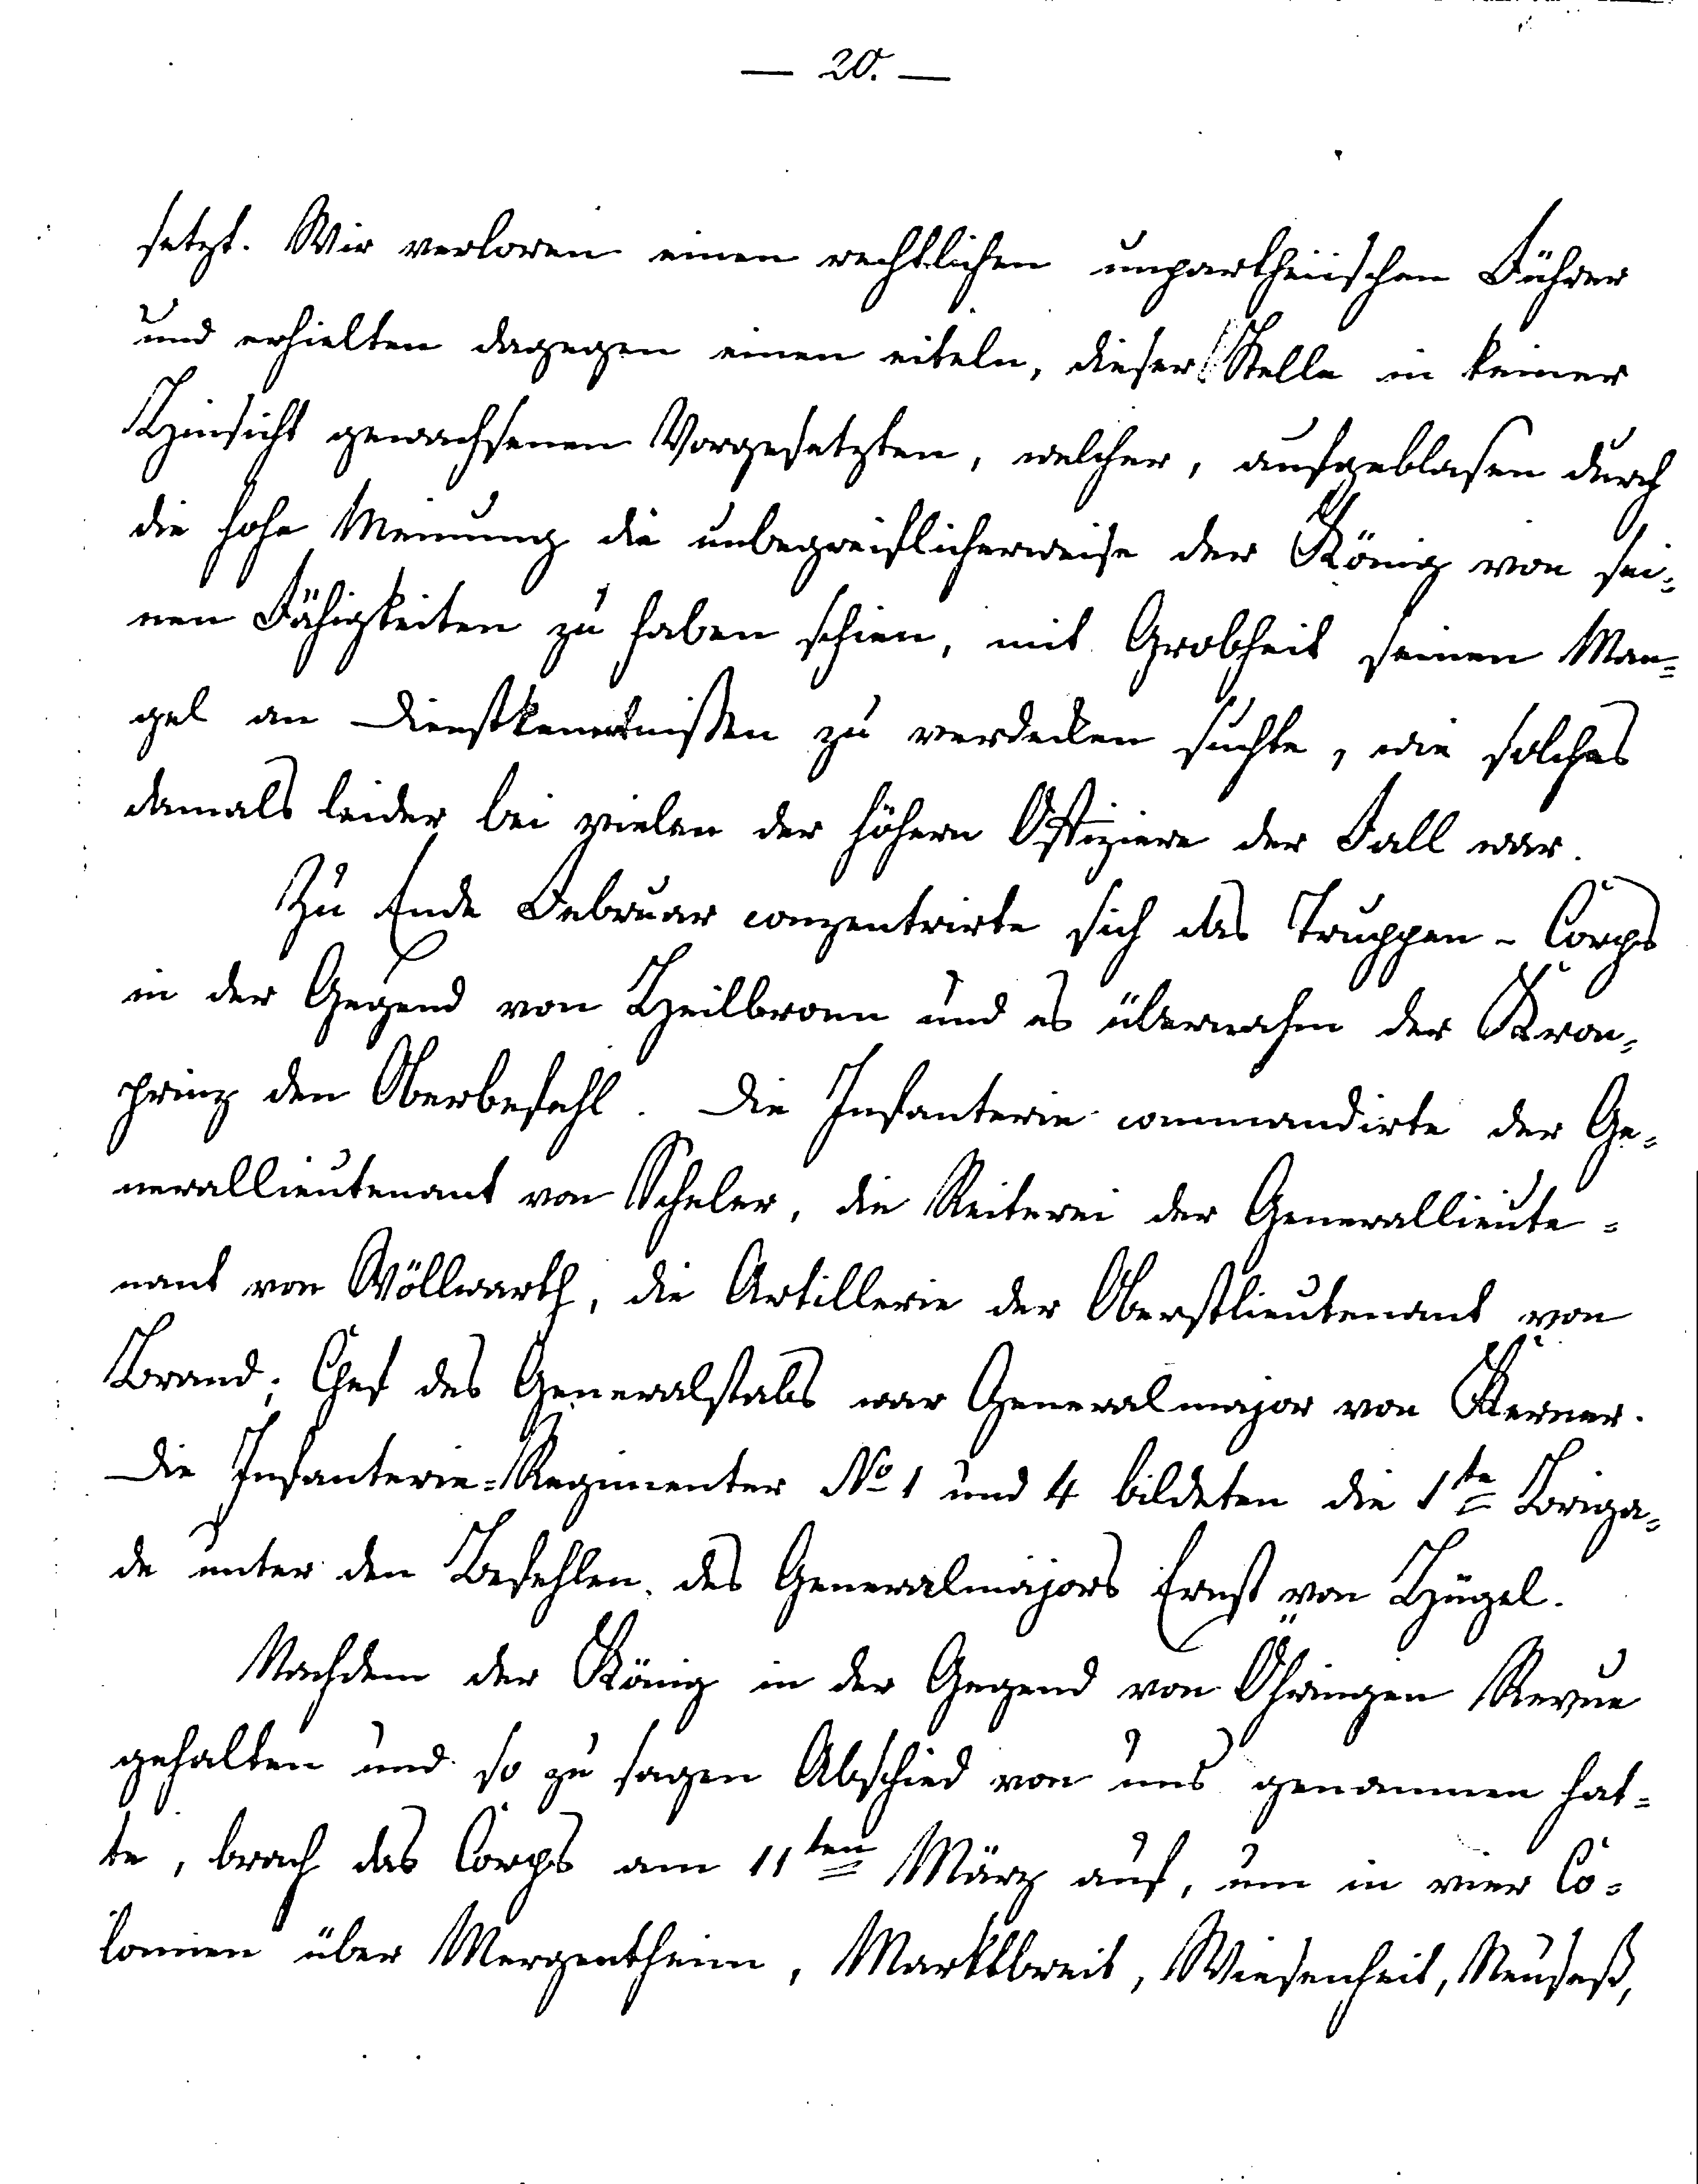 — 20. —
setzt. Wir verloren einen rechtlichen unpartheiischen Führer
und erhielten dagegen einen eiteln, dieser Stelle in keiner
Hinsicht gewachsenen Vorgesetzten, welcher, aufgeblasen durch
die hohe Meinung die unbegreiflicherweise der König von sei-
nen Fähigkeiten zu haben schien, mit Grobheit seinen Man-
gel an Dienstkenntnißen zu verdecken suchte, wie solches
damals leider bei vielen der höhern Offiziere der Fall war.
Zu Ende Februar conzentrirte sich das Truppen-Corps
in der Gegend von Heilbronn und es übernahm der Kron-
prinz den Oberbefehl. Die Infanterie commandirte der Ge-
nerallieutenant von Scheler, die Reiterei der Generallieute-
nant von Wöllwarth, die Artillerie der Oberstlieutenant von
Brand; Chef des Generalstabs war Generalmajor von Kerner.
Die Infanterie-Regimenter No 1 und 4 bildeten die 1te Briga-
de unter den Befehlen des Generalmajors Ernst von Hügel.
Nachdem der König in der Gegend von Öhringen Revue
gehalten und so zu sagen Abschied von uns genommen hat-
te, brach das Corps am 11ten März auf, um in vier Co-
lonnen über Mergentheim, Marktbreit, Wiesenheit, Neuseß,